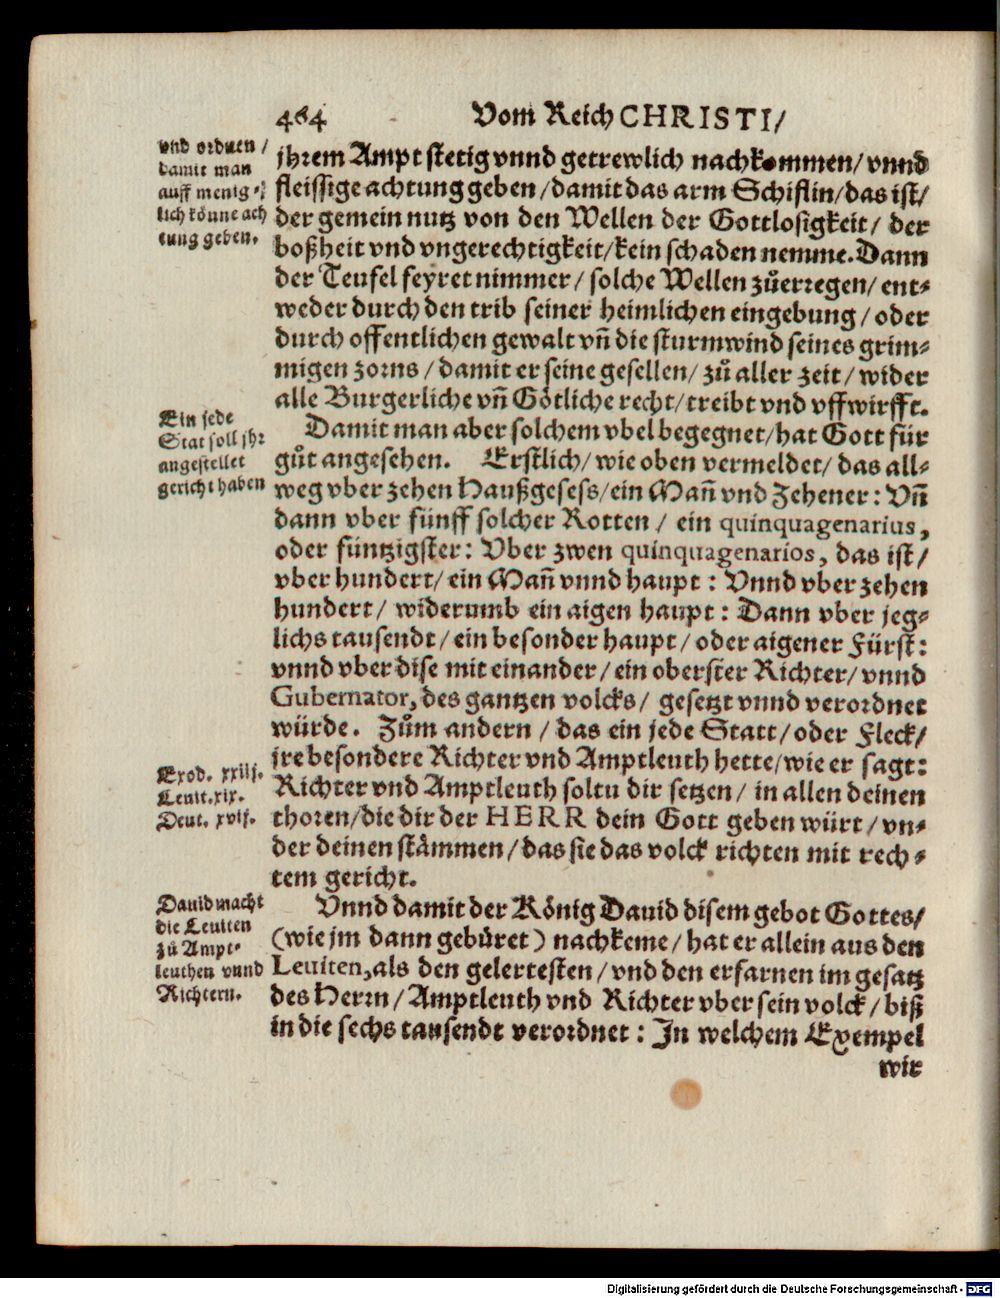 464 Vom Reich CHRISTI/
vnd ordnen/
damit man
auff menig⸗
lich könne ach
tung geben.
jhrem Ampt stetig vnnd getrewlich nachkommen/ vnnd
fleissige achtung geben/ damit das arm Schiflin/ das ist/
der gemein nutz von den Wellen der Gottlosigkeit/ der
boßheit vnd vngerechtigkeit/ kein schaden nemme. Dann
der Teufel feyret nimmer/ solche Wellen zůerregen/ ent⸗
weder durch den trib seiner heimlichen eingebung/ oder
durch offentlichen gewalt vñ die sturmwind seines grim⸗
migen zorns/ damit er seine gesellen/ zů aller zeit/ wider
alle Burgerliche vñ Götliche recht/ treibt vnd vffwirfft.
Ein jede
Stat soll jhr
angestellet
gericht haben
Damit man aber solchem vbel begegnet/ hat Gott für
gůt angesehen. Erstlich/ wie oben vermeldet/ das all⸗
weg vber zehen Haußgesess/ ein Mañ vnd Zehener: Vñ
dann vber fünff solcher Rotten/ ein quinquagenarius,
oder füntzigster: Vber zwen quinquagenarios, das ist/
vber hundert/ ein Mañ vnnd haupt: Vnnd vber zehen
hundert/ widerumb ein aigen haupt: Dann vber jeg⸗
lichs tausendt/ ein besonder haupt/ oder aigener Fürst:
vnnd vber dise mit einander/ ein oberster Richter/ vnnd
Gubernator, des gantzen volcks/ gesetzt vnnd verordnet
würde. Zům andern/ das ein jede Statt/ oder Fleck/
jre besondere Richter vnd Amptleuth hette/ wie er sagt:
Exod. xxiij.
Leuit. xix.
Deut. xvij.
Richter vnd Amptleuth soltu dir setzen/ in allen deinen
thoren/ die dir der HERR dein Gott geben würt/ vn⸗
der deinen stämmen/ das sie das volck richten mit rech⸗
tem gericht.
Dauid macht
die Leuiten
zů Ampt⸗
leuthen vnnd
Richtern.
Vnnd damit der König Dauid disem gebot Gottes/
(wie jm dann gebüret) nachkeme/ hat er allein aus den
Leuiten, als den gelertesten/ vnd den erfarnen im gesatz
des Herrn/ Amptleuth vnd Richter vber sein volck/ biß
in die sechs tausendt verordnet: In welchem Exempel
wir
Digitalisierung gefördert durch die Deutsche Forschungsgemeinschaft - DFG